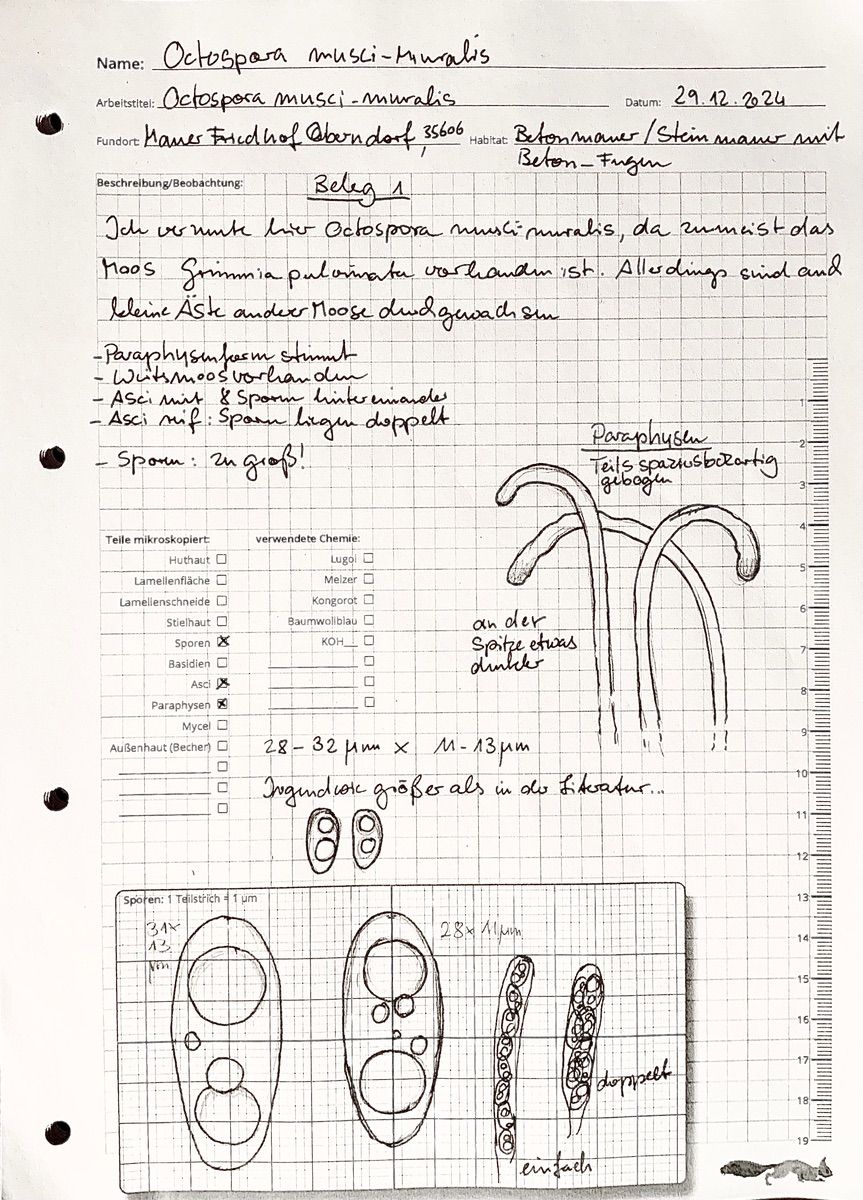 Name: Octospora musci-muralis
Arbeitstitel: Octospora musci-muralis Datum: 29.12.2024
Fundort: Mauer Friedhof Oberndorf, 35606 Habitat: Betonmauer/Steinmauer mit
Beton-Fugen
Beschreibung/Beobachtung: Beleg 1
Ich vermute hier Octospora musci-muralis, da zumeist das
Moos Grimmia pulvinata vorhanden ist. Allerdings sind auch
kleine Äste anderer Moose durchgewachsen
- Paraphysenform stimmt
- Wirtsmoos vorhanden
- Asci mit 8 Sporen hintereinander
- Asci reif: Sporen liegen doppelt
- Sporen: zu groß!
Paraphysen
Teils spazierstockartig
gebogen
an der
Spitze etwas
dunkler
Teile mikroskopiert: verwendete Chemie:
Huthaut Lugol
Lamellenfläche Melzer
Lamellenschneide Kongorot
Stielhaut Baumwollblau
Sporen KOH
Basidien
Asci
Paraphysen
Mycel
Außenhaut (Becher)
28-32 µm x 11-13 µm
Irgendwie größer als in der Literatur...
1
2
3
4
5
6
7
8
9
10
11
12
13
14
15
16
17
18
19
Sporen: 1 Teilstrich = 1 µm
31x
13
µm
28x11µm
einfach
doppelt